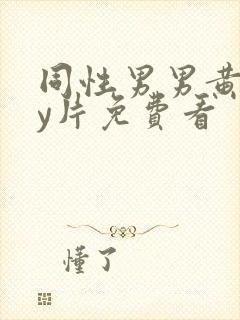 同性男男黄
y片免費看
懂了